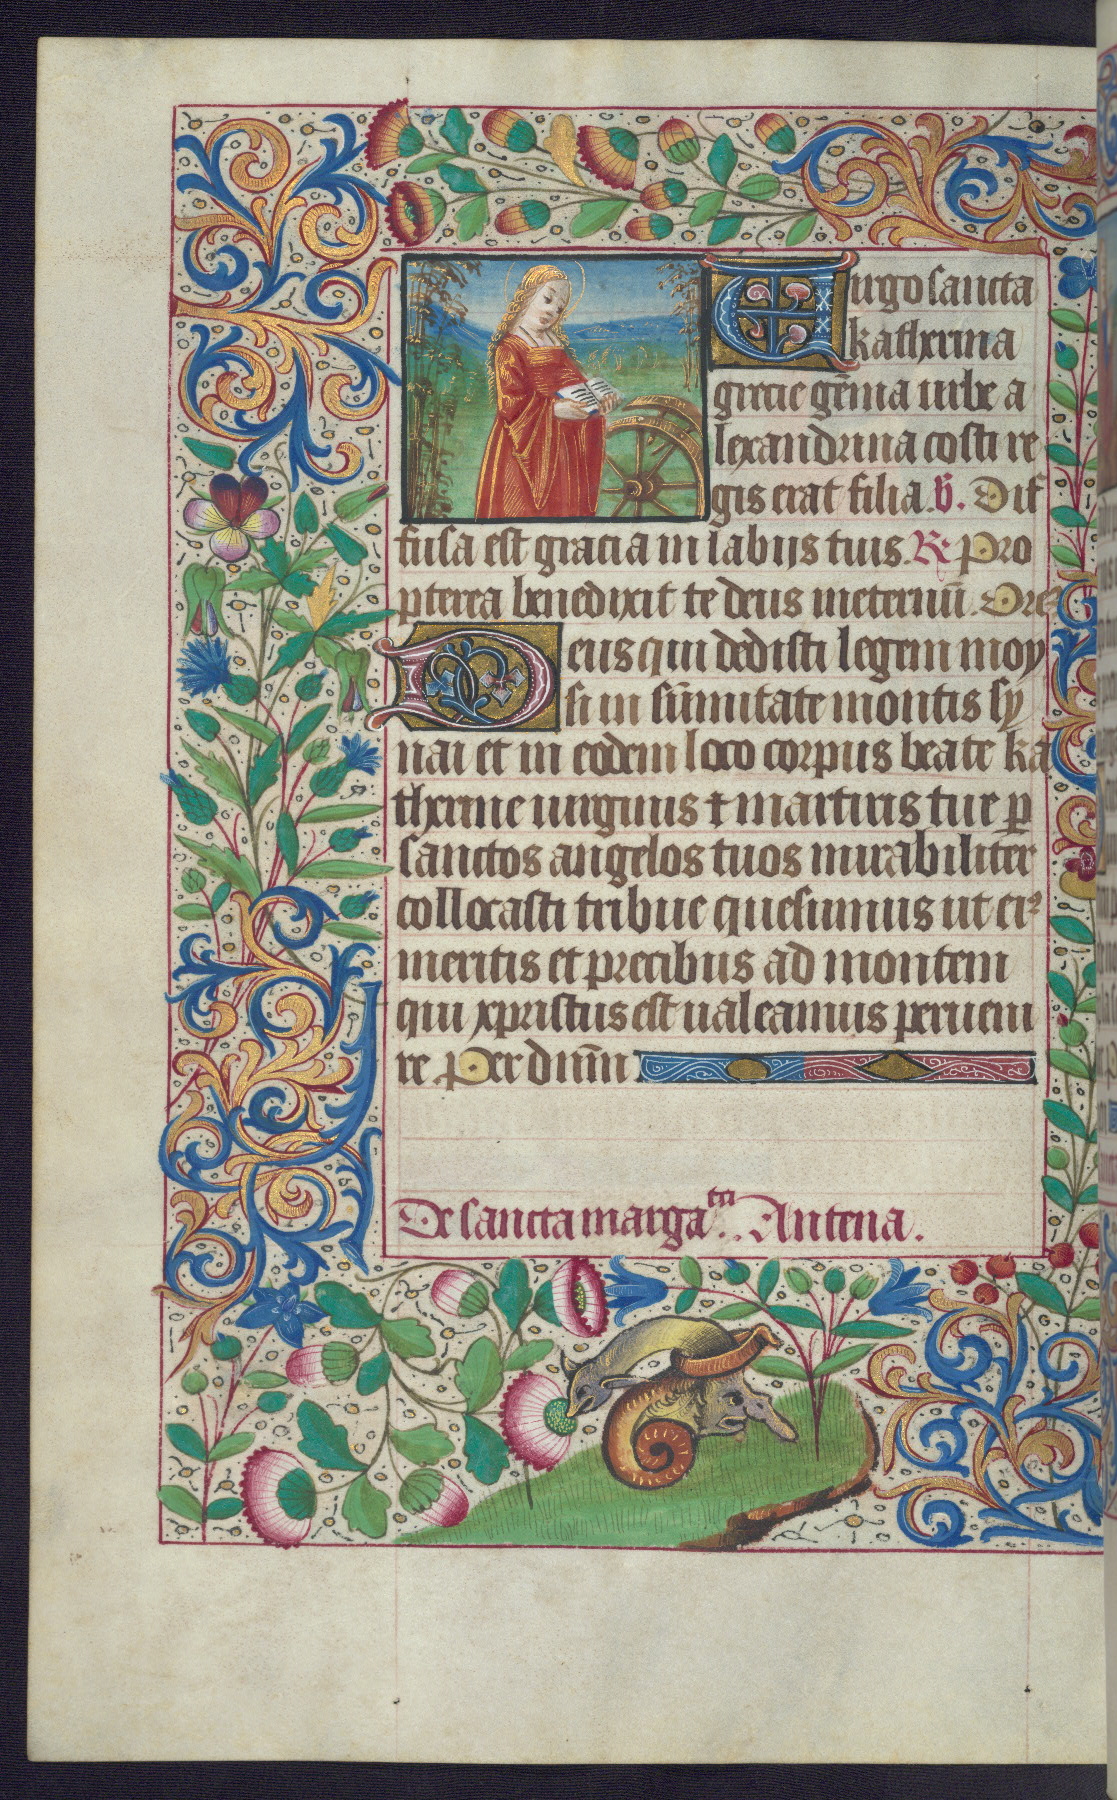 Uirgo sancta
katherina
grecie gēma urbe a
lexandrina costi re
gis erat filia. v̄. Dif
fusa est gracia in labijs tuis. R̶ Pro
pterea benedixit te deus in eternū. Ore
Deus qui dedisti legem moy
si in sūmitate montis sy
nai et in eodem loco corpus beate ka
therine uirginis ⁊ martiris tue ꝑ
sanctos angelos tuos mirabiliter
collocasti tribue quesumus ut eiꝰ
meritis et precibus ad montem
qui xpristus est ualeamus perueni
re. Per dn̄m
De sancta margaᵉᵗᵃ. Antena.